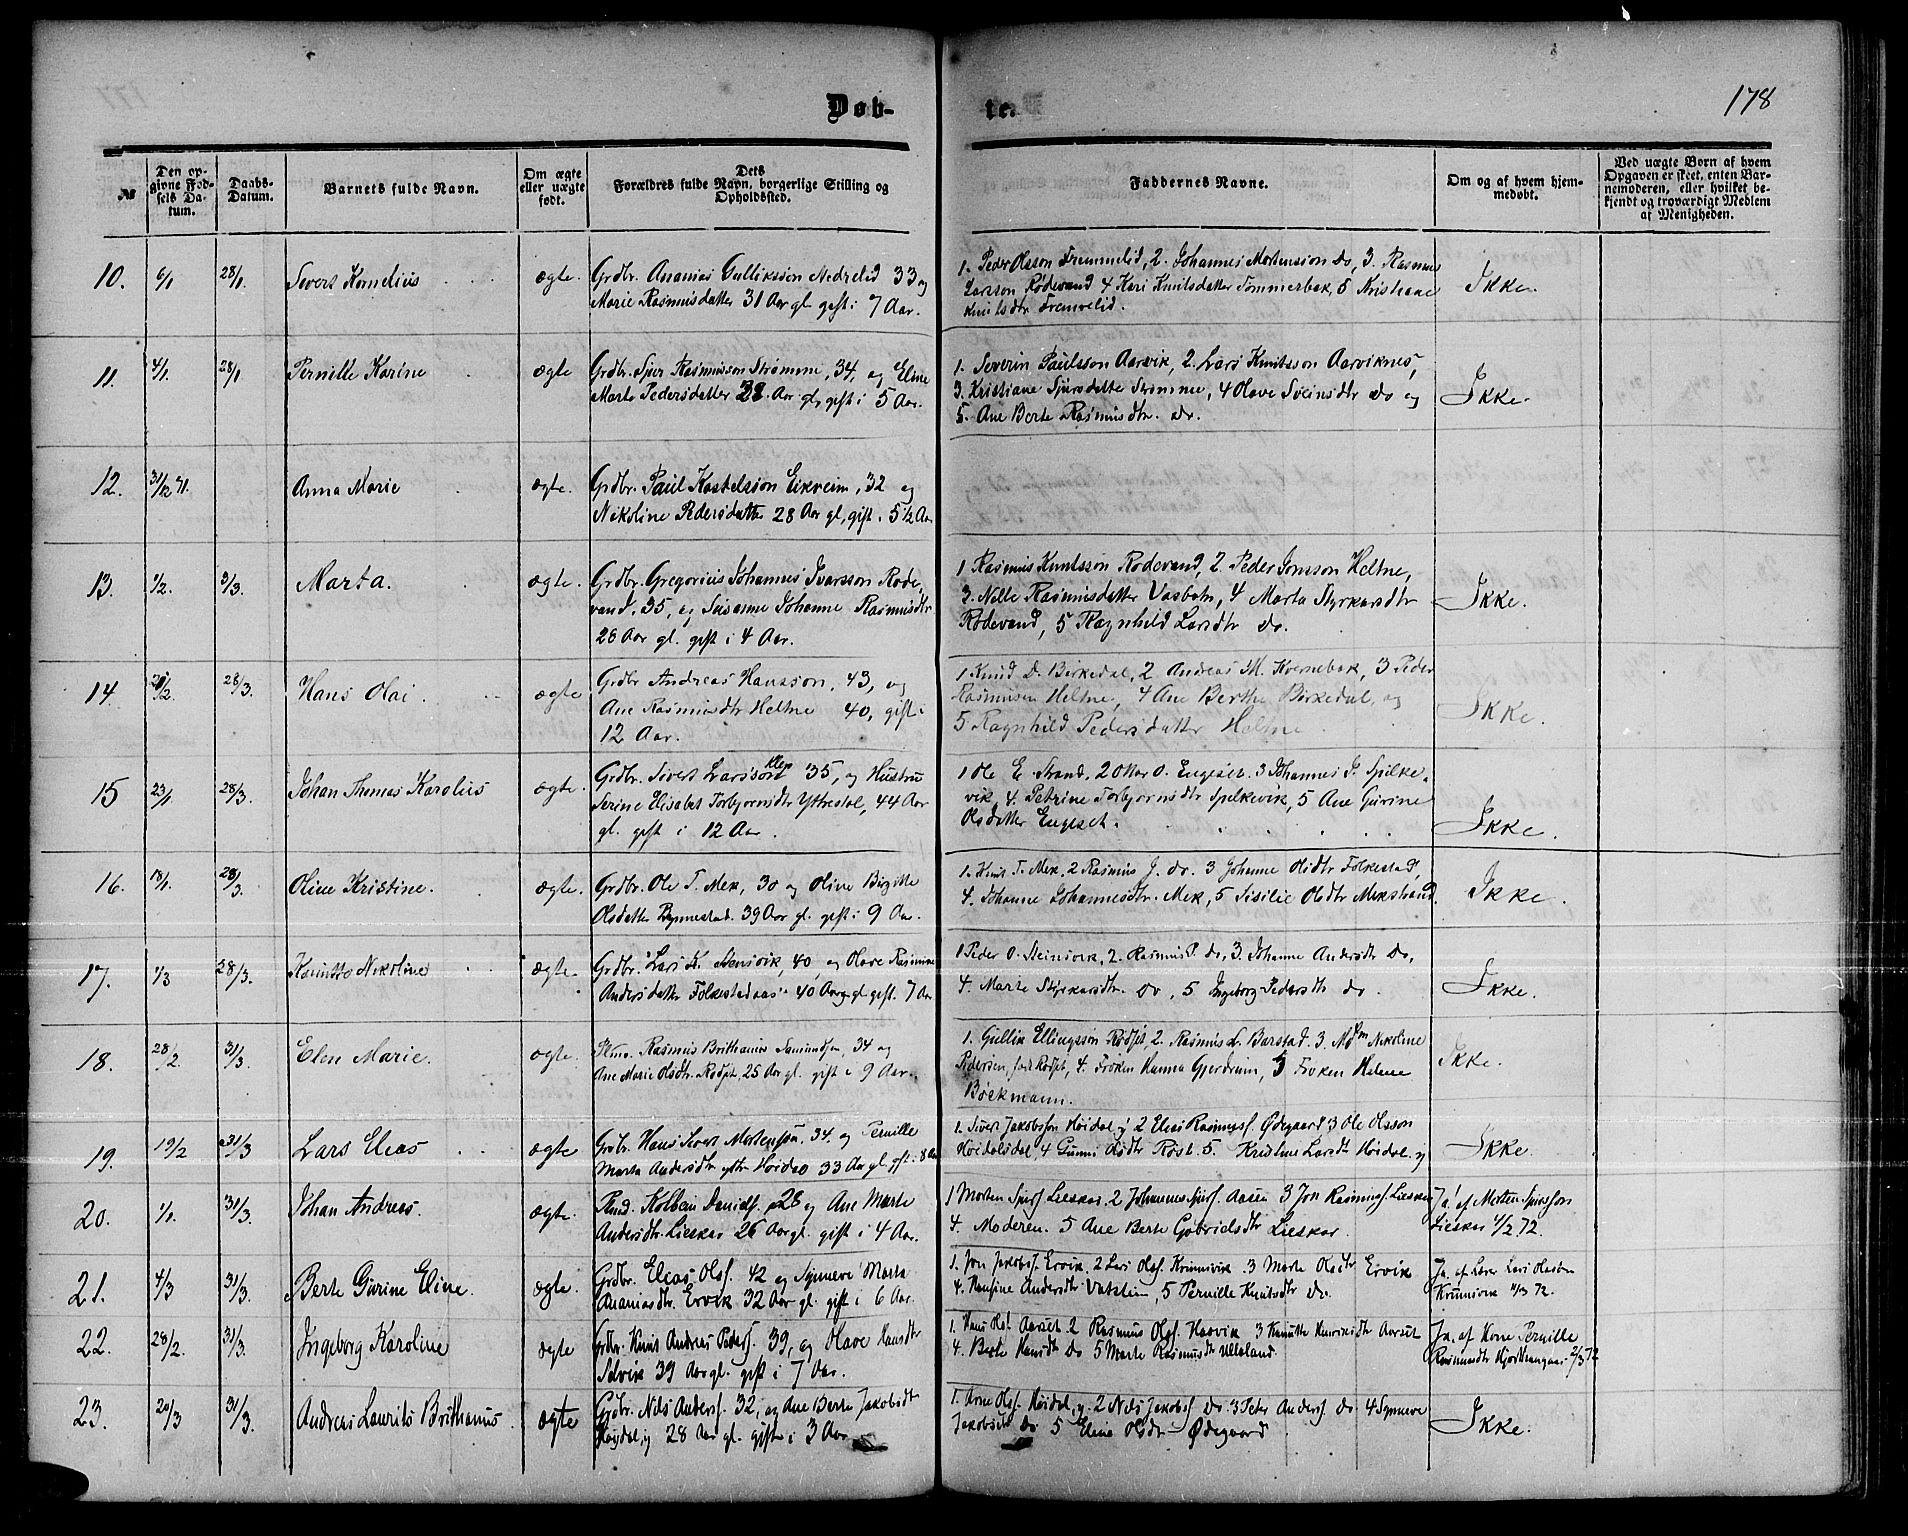 Døb-
te.
178
№
Den opgivne Fødsels Datum.
Daabs-Datum.
Barnets fulde Navn.
Om ægte eller uægte født.
Dets Forældres fulde Navn, borgerlige Stilling og Opholdssted.
Faddernes Navne.
Om og af hvem hjemmedøbt.
Ved uægte Børn af hvem Opgaven er skeet, enten Barnemoderen, eller hvilket bekjendt og troværdigt Medlem af Menigheden.
10. 6/1 28/1 Sivert Kornelius ægte. Grdbr. Ananias Gulliksson Nedrelid 33 og
Marie Rasmusdatter 31 Aar gl. gift i 7 Aar.
1. Peder Olsson Fremmelid, 2. Johannes Mortensson Do, 3. Rasmus
Larsson Rødevand 4 Kari Knutsdatter Tømmerbak, 5 Kristiane
Knutsdtr Fremelid.
Ikke.
11. 4/1 28/1 Pernille Karine ægte Grdbr. Sjur Rasmusson Strømme, 34, og Eline
Marte Pedersdatter 28 Aar gl, gift i 5 Aar.
1. Severin Paulsson Aarvik, 2. Lars Knutsson Aarviknes,
3. Kristiane Sjursdatter Strømme, 4 Olave Sveinsdtr Do og
5. Ane Berte Rasmusdtr. Do.
Ikke.
12. 31/12 71. Anna Marie ægte. Grdbr. Paul Kostelsson Eikreim, 32 og
Nikoline Pedersdatter 28 Aar gl, gift i 5 1/2 Aar
13. 1/2. 3/3. Marta. ægte. Grdbr. Gregorius Johannes Ivarsson Rode-
vand, 35, og Susanne Johanne Rasmusdtr
28 Aar gl. gift i 4 Aar.
1 Rasmus Knutsson Rødevand, 2. Peder Jonsson Heltne,
3. Nille Rasmusdatter Vasbotn, 4 Marta Styrkarsdtr
Rødevand, 5 Ragnhild Larsdtr Do.
Ikke.
14. /2. 28/3. Hans Olai. ægte Grdbr Andreas Hansson, 43, og
Ane Rasmusdtr Heltne 40, gift i
12 Aar.
1. Knud D. Birkedal, 2 Andreas M. Kvernebak, 3 Peder
Rasmussen Heltne, 4 Ane Berthe Birkedal, og
5 Ragnhild Pedersdatter Helsne
Ikke.
15 23/1 28/3. Johan Thomas Karolius ægte. Grdbr. Sivert Larsson Klep 35, og Hustru
Serine Elisabet Torbjørnsdtr Yttrestøl, 44 Aar
gl. gift i 12 Aar.
1 Ole E. Strand, 2 Ottar O. Engeset. 3 Johannes J. Spilke-
vik, 4. Petrine Torbjørnsdtr Spilkevik, 5 Ane Gurine
Olsdatter Engeset.
Ikke.
16. 18/1. 28/3. Oline Kristine. ægte. Grdbr. Ole T. Mek, 30 og Oline Birgitte
Olsdatter Bynnestad. 39 Aar gl. gift i 9 Aar.
1. Knut T. Mek, 2 Rasmus J. do. 3 Johanne Olsdtr Folkestad,
4. Johanne Johannesdtr. Mek, 5 Sisilie Olsdtr Mekstrand.
Ikke.
17. 1/3 28/3. Knutte Nikoline ægte. Grdbr. Lars K. Stensvik, 40, og Olave Rasmine
Andersdatter Folkestadaas 40 Aar gl gift. 7 Aar
1 Peder O. Steinsvik, 2. Rasmus P. do, 3. Johanne Andersdtr Do,
4. Marte Styrkarsdtr. Do, 5 Ingeborg Pedersdtr do.
Ikke.
18. 28/2 31/3. Elen Marie. ægte. Hmd. Rasmus Brithanius Samundsen, 34 og
Ane Marie Olsdtr. Rødset, 25 Aar gl. gift i 9 Aar.
1. Gullik Ellingsson Rødset, 2. Rasmus L. Barstad. 3. Mdm Nikoline
Pedersen, Rødset, 4. Frøken Hanna Gjerdrum, 5 Frøken Helene
Bøckmann.
Ikke.
19. 19/2 31/3 Lars Elias ægte Grbr. Hans Sivert Mortensson. 34. og Pernille
Marta Andersdtr ytre Høidal 33 Aar gl gft. 8 Aar
1. Sivert Jakobsson Høidal y 2 Elias Rasmuss. Ødegaard 3 Ole Olsson
Høidalsdal, 4 Gunni Olsdtr Røst. 5. Kristine Larsdt Høidal. y
Ikke.
20. 1/1. 31/3. Johan Andreas. ægte. Rmd. Kolbein Daniels. 28 og Ane Marte
Andersdtr. Lieskar 26 Aar gl. gift i 4 Aar.
1 Morten Sjurs. Lieskar. 2 Johannes Sjurs. Aasen 3 Jon Rasmuss. Lieskar
4. Moderen. 5 Ane Berte Gabrielsdtr Lieskar.
Ja! af Morten Sjursson
Lieskar 4/2 72.
21. 4/3 31/3. Berte Gurine Eline. ægte. Grdbr. Elias Ols. 42 og Synneve Marta
Ananiasdtr. Ervik. 32 Aar gl. gift i 6 Aar.
1. Jon Jakobs. Ervik. 2 Lars Ols. Krumsvik. 3 Marte Olsdtr Ervik
4. Hansine Andersdtr Vatstein, 5 Pernille Knutsdtr do.
Ja. af Lærer Lars Olssen
Krumsvik 72.
22. 28/2. 31/3. Ingeborg Karoline ægte Grdbr. Knut Andreas Peders. 39, og Olave Hansdtr
Selvik 39 Aar gl. gift i 7 Aar.
1. Hans Ols. Aarset. 2 Rasmus Ols. Haavik 3 Knutte Henriksdtr Aarset
4. Berte Hansdtr Do 5 Marte Rasmusdtr Ulleland.
Ja. af Kone Pernille
Rasmusdtr 2/3 72
23. 20/3 31/3. Andreas Laurits Brithanius. ægte Grbr. Nils Anders. 32, og Ane Berte Jakobsdt
Høydal, y 28 Aar gl. gift i 3 Aar
1. Arne Ols. Høidal, y. 2 Nils Jakobs. do 3 Peter Anders. do 4 Synneve
Jakobsdt do 5 Eline Olsdtr Ødegaard
Ikke.